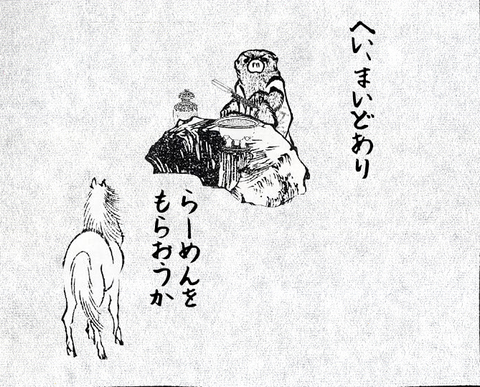 へい、まいどあり
らーめんを
もらおうか